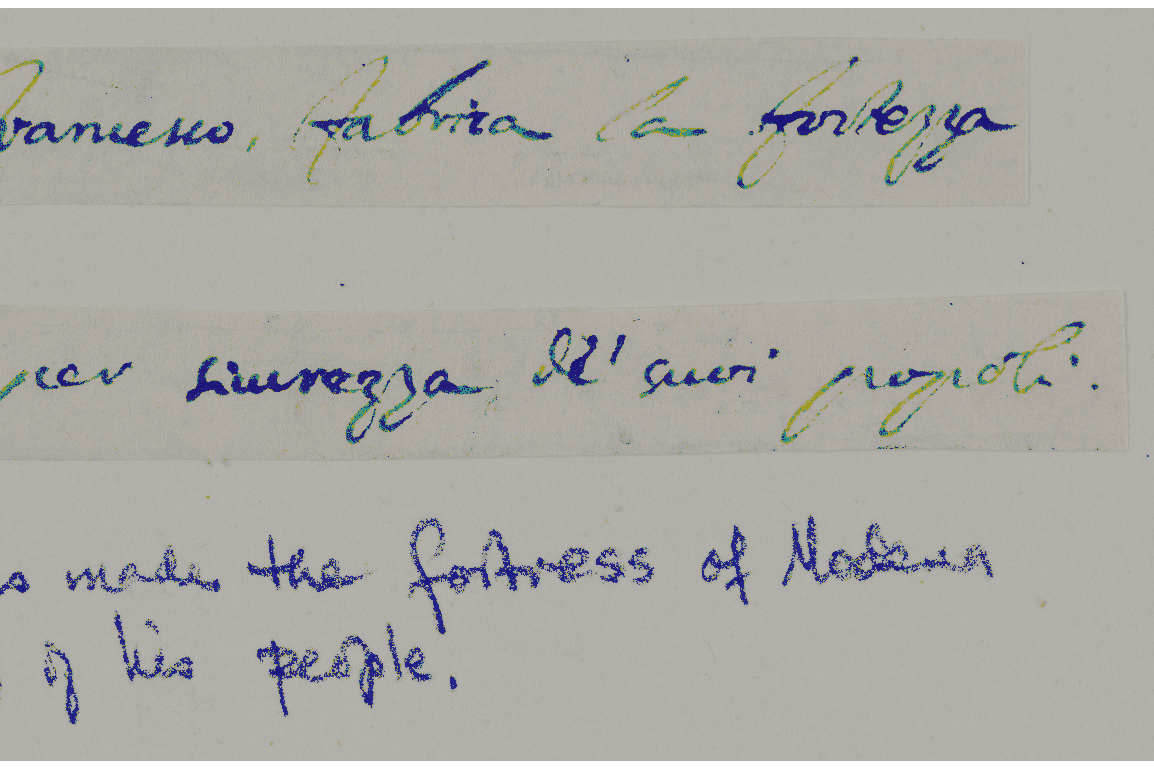 Francesco, fabrica la fortezza
per sicurezza, de' suoi popoli.
made the fortress of Modena
of his people.